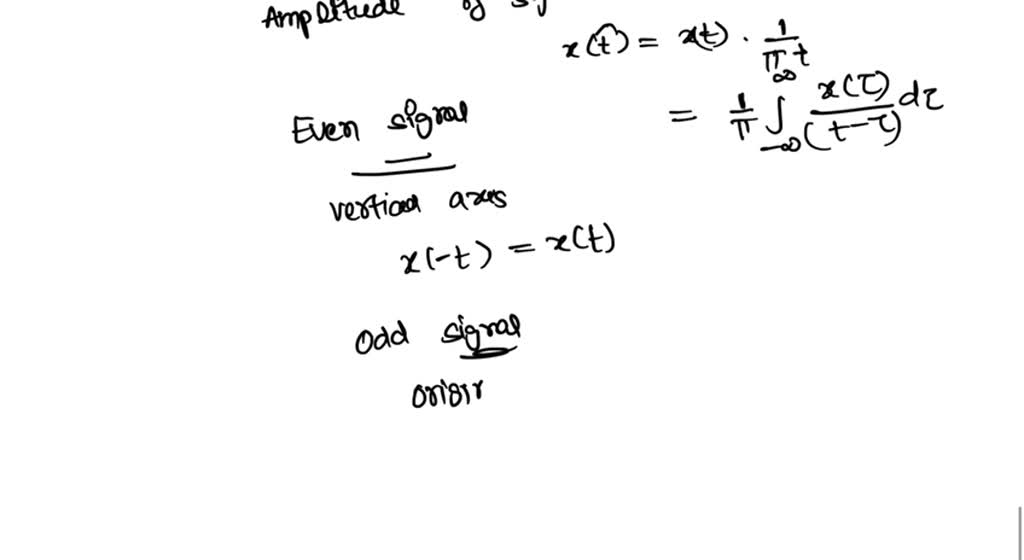 Amplitude of
x(t) = x(t) · 1/πt
= 1/π ∫_{-∞}^{∞} x(τ)/(t-τ) dτ
Even signal
vertical axes
x(-t) = x(t)
Odd signal
origin